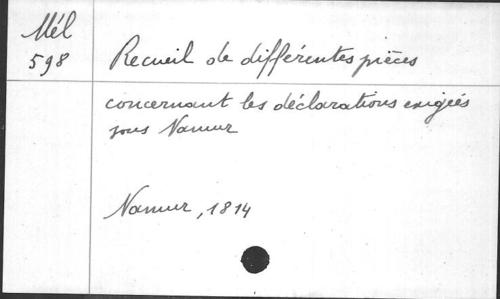 Mél
598
Recueil de différentes pièces
concernant les déclarations exigées
sous Namur
Namur, 1814